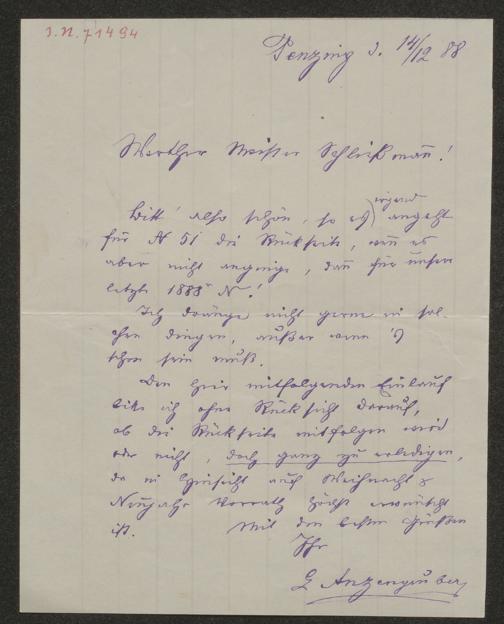 I.N. 71494
Penzing d. 14/12 88
Werther Meister Schließmañ!
Bitt' also schön, so es irgend angeht
für N 51 die Rückseite, weñ es
aber nicht anginge, dañ für unsere
letzte 1888er N!
Ich dränge nicht gerne in sol-
chen Dingen, außer wenn's
schon sein muß.
Den hier mitfolgenden Einlauf
bitte ich ohne Rücksicht darauf,
ob die Rückseite mitfolgen wird
oder nicht, doch ganz zu erledigen,
da in Hinsicht auf Weihnacht &
Neujahr Vorrath höchst erwünscht
ist. Mit den besten Grüßen
Ihr
L Anzengruber